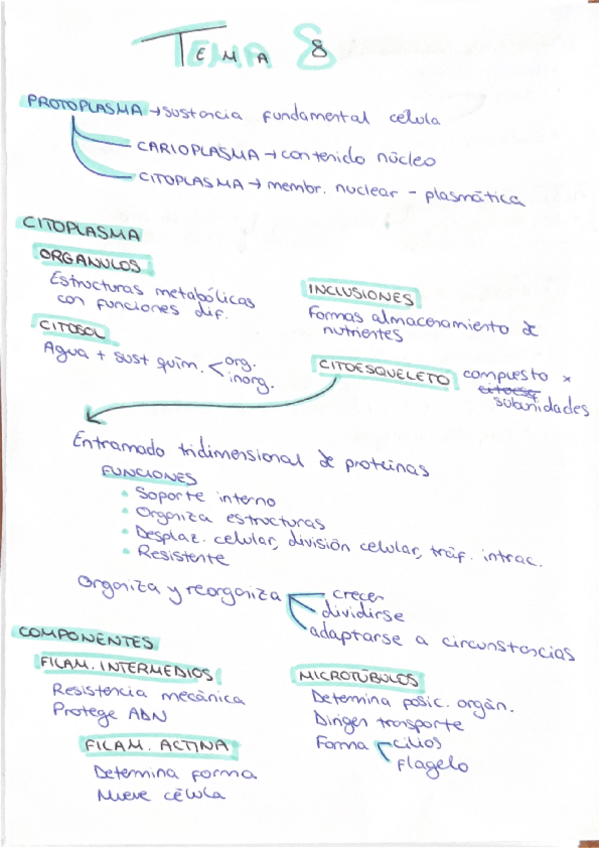 TEMA 8
PROTOPLASMA → sustancia fundamental célula
CARIOPLASMA → contenido núcleo
CITOPLASMA → membr. nuclear - plasmática
CITOPLASMA
ORGÁNULOS
Estructuras metabólicas
con funciones dif.
CITOSOL
Agua + sust quím. < org.
inorg.
INCLUSIONES
Formas almacenamiento de
nutrientes
CITOESQUELETO compuesto x
citoesq
subunidades
Entramado tridimensional de proteínas
FUNCIONES
• Soporte interno
• Organiza estructuras
• Desplaz. celular, división celular, tráf. intrac.
• Resistente
Organiza y reorganiza
crecer
dividirse
adaptarse a circunstancias
COMPONENTES
FILAM. INTERMEDIOS
Resistencia mecánica
Protege ADN
FILAM. ACTINA
Determina forma
Mueve célula
MICROTÚBULOS
Determina posic. orgán.
Dirigen transporte
Forma cilios
flagelo